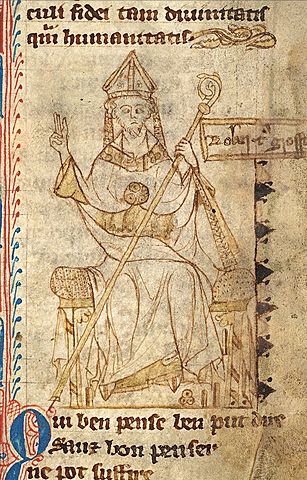 culi fidei tam diuinitatis
qm humanitatis
Robert' gross
Qui ben pense ben put dire
Sanz bon penser
ne pot suffire